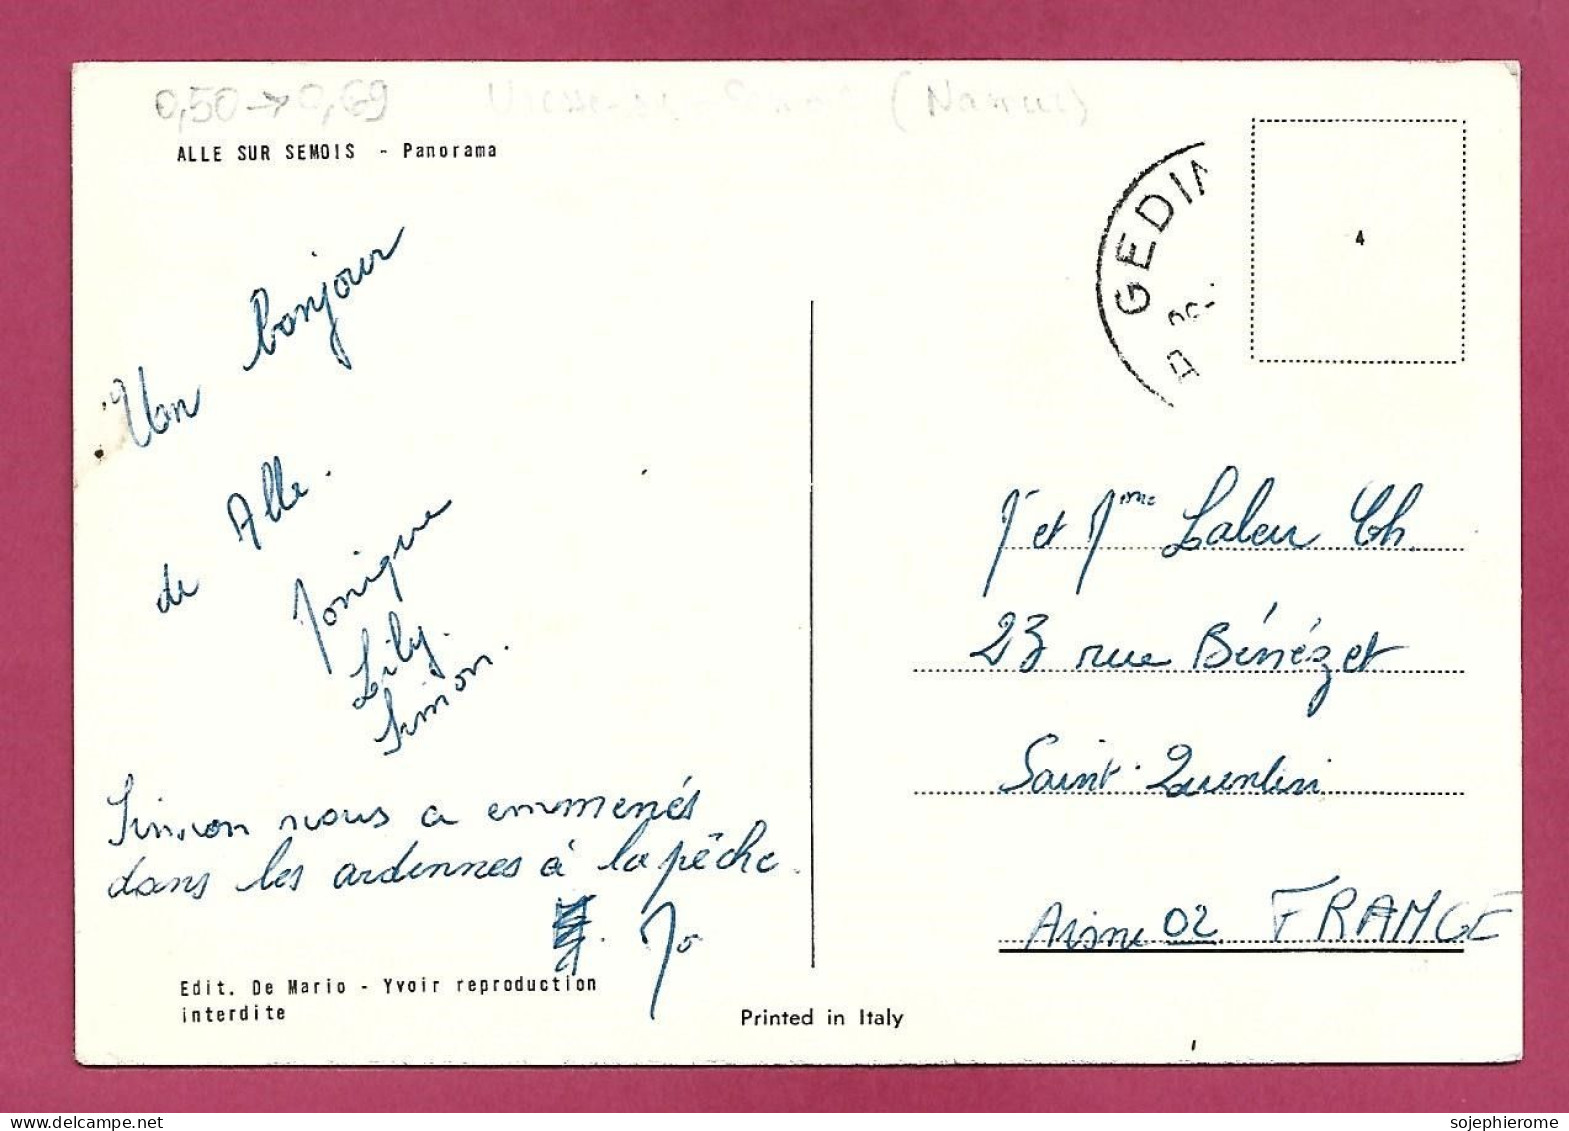 0,50 → 0,69 Vresse-sur-Semois (Namur)
ALLE SUR SEMOIS - Panorama
GEDIN
4
Un bonjour
de Alle.
Monique
Lily.
Simon.
Simon nous a emmenés
dans les ardennes à la pêche.
Mo
Mr et Mme Laleu Ch.
23 rue Bénézet
Saint-Quentin
Aisne 02 FRANCE
Edit. De Mario - Yvoir reproduction
interdite
Printed in Italy
sojephierome